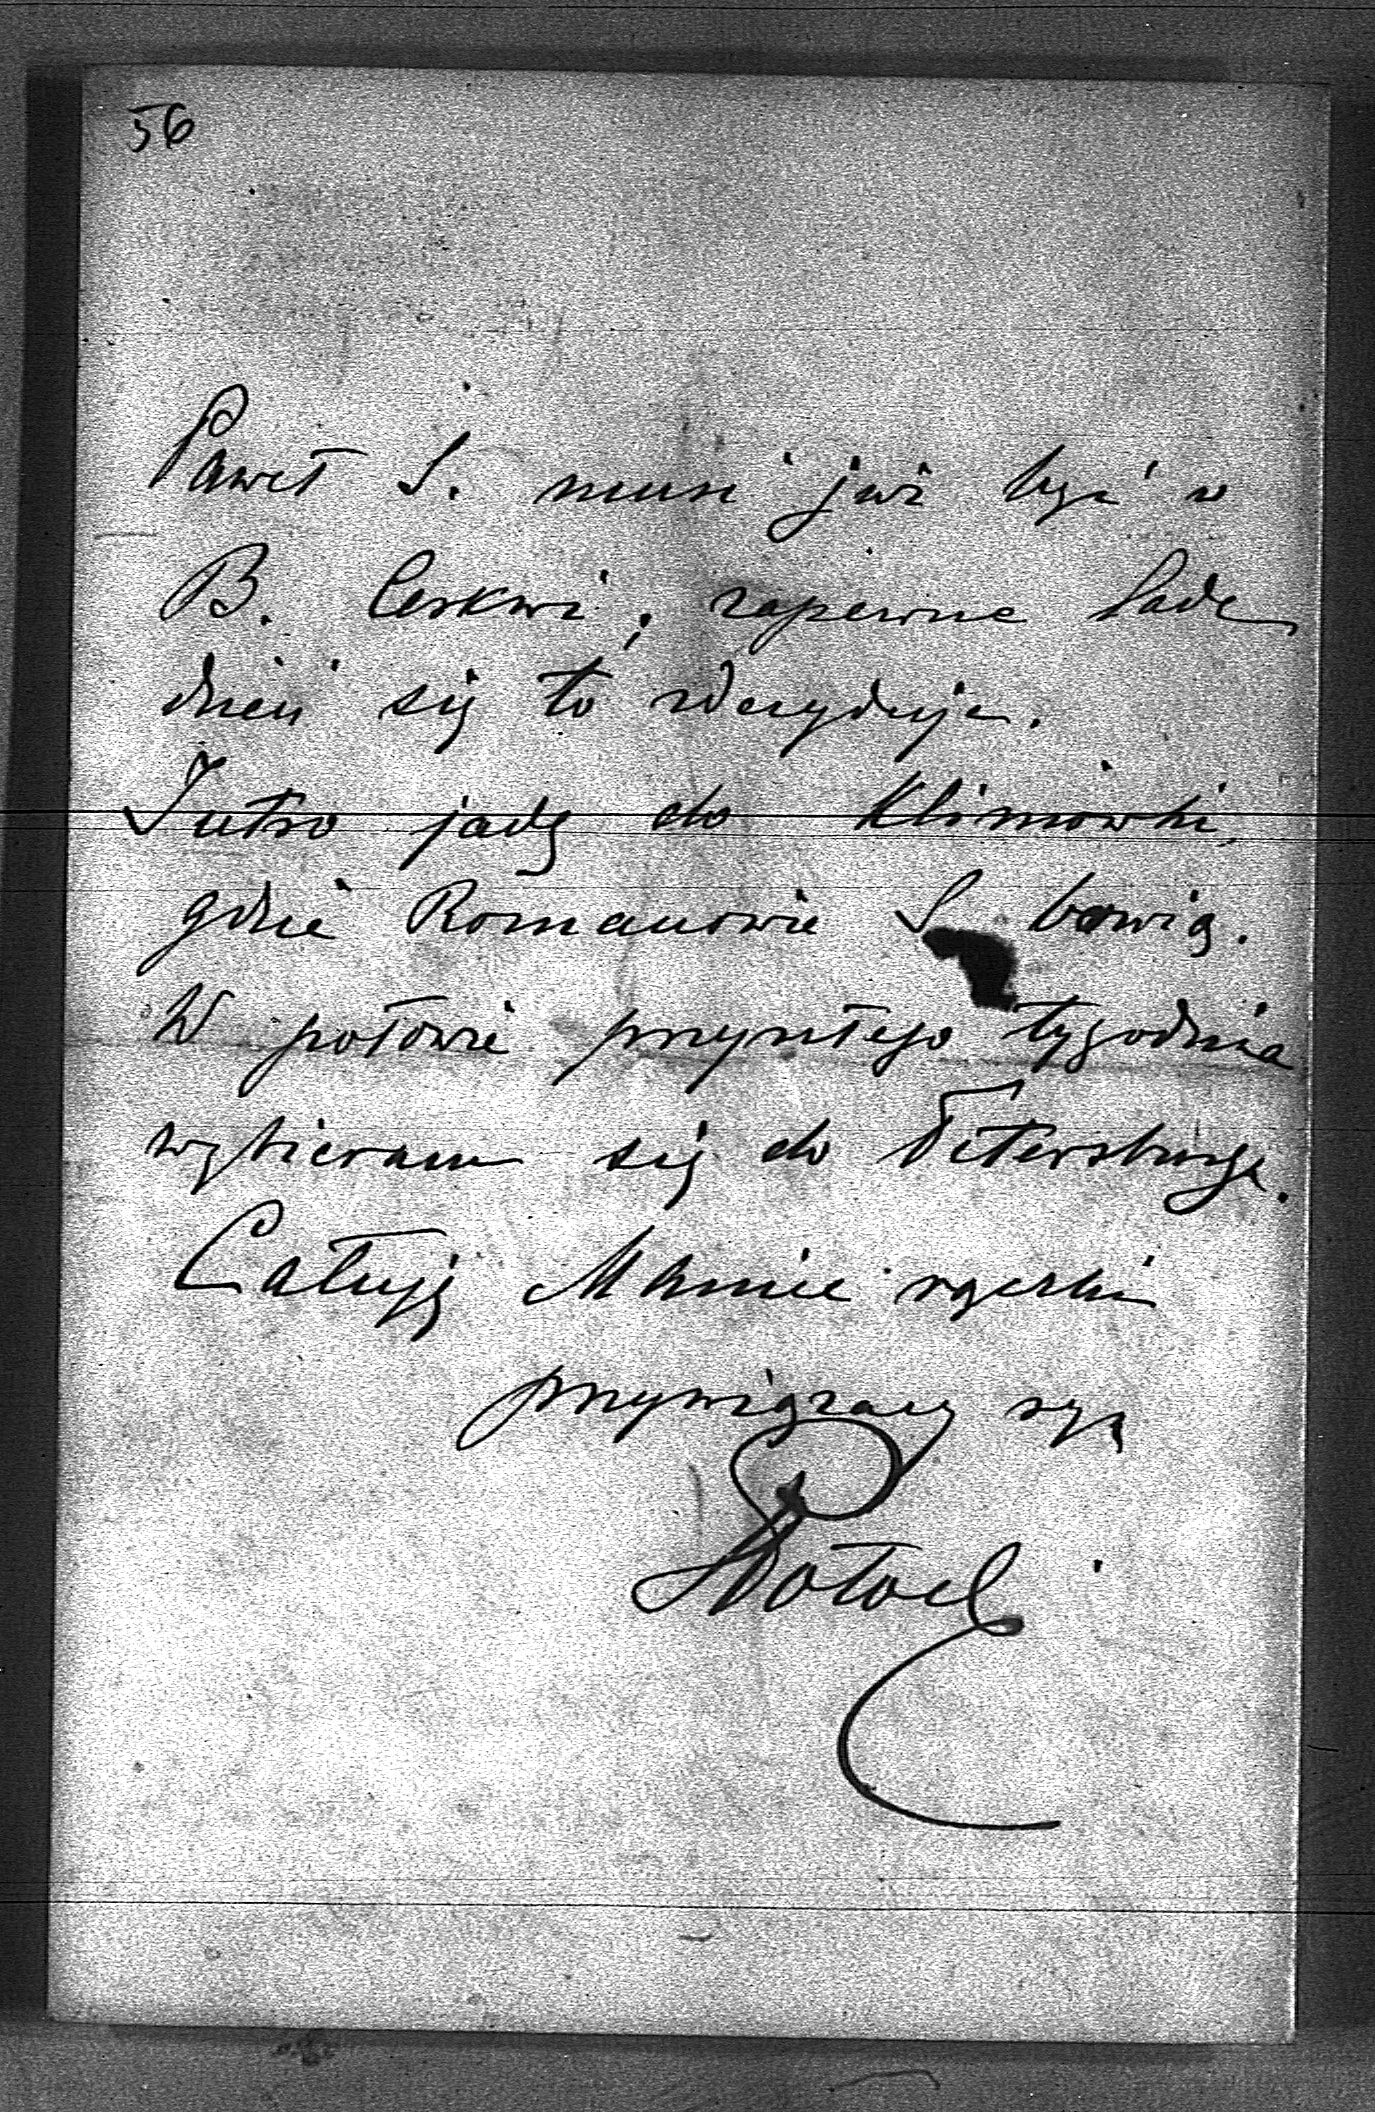 56
Paweł S. musi już być w
B. Cerkwi; zapewne lada
dzień się to zdecyduje.
Jutro jadę do Klimówki,
gdzie Romanowie S. bawią.
W połowie przyszłego tygodnia
wybieram się do Petersburga.
Całuję Mamie rączki
przywiązany syn
Potocki